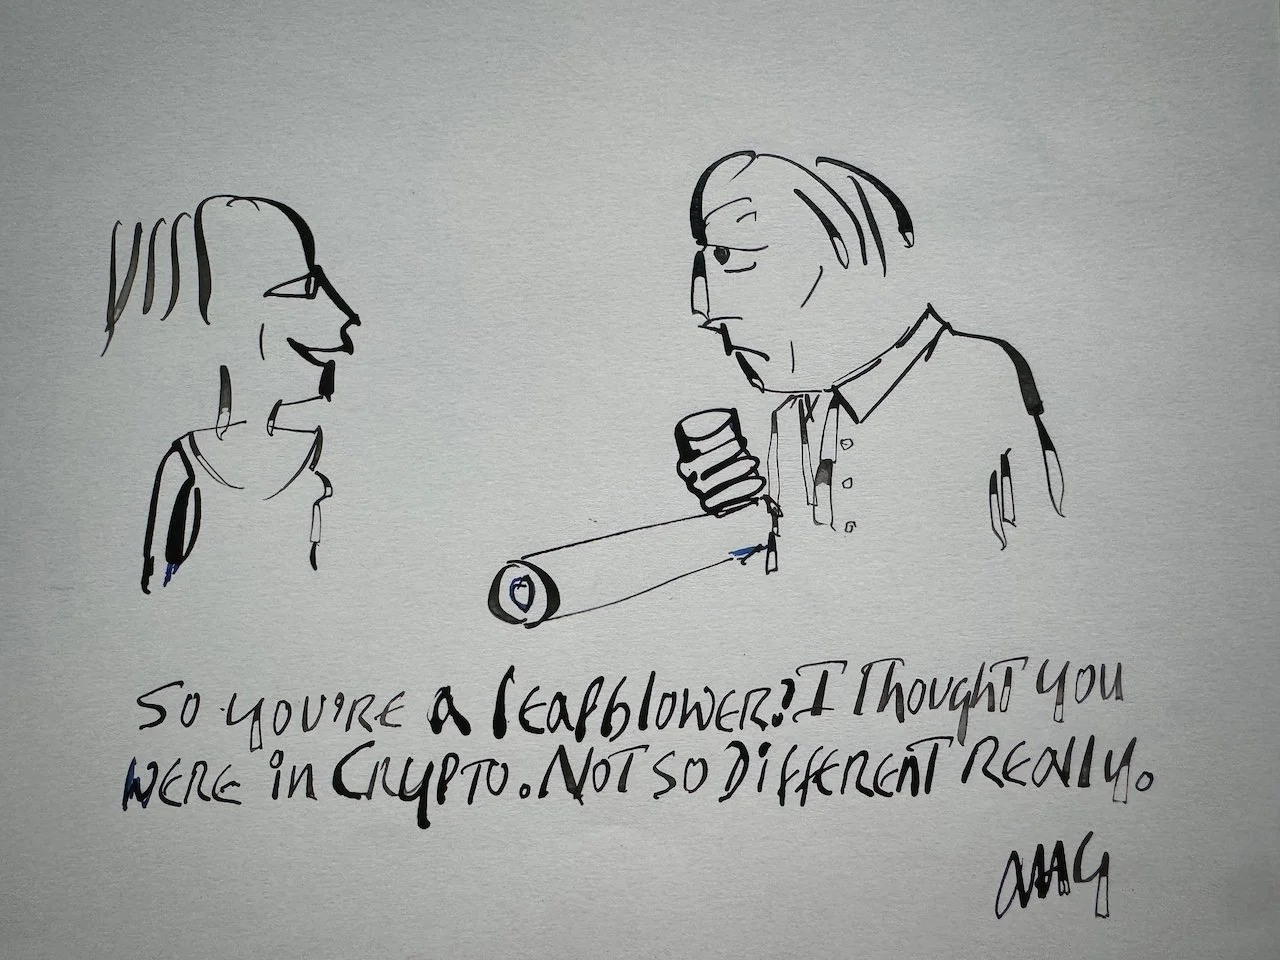 So you're a leafblower? I Thought you
were in Crypto. Not so Different Really.